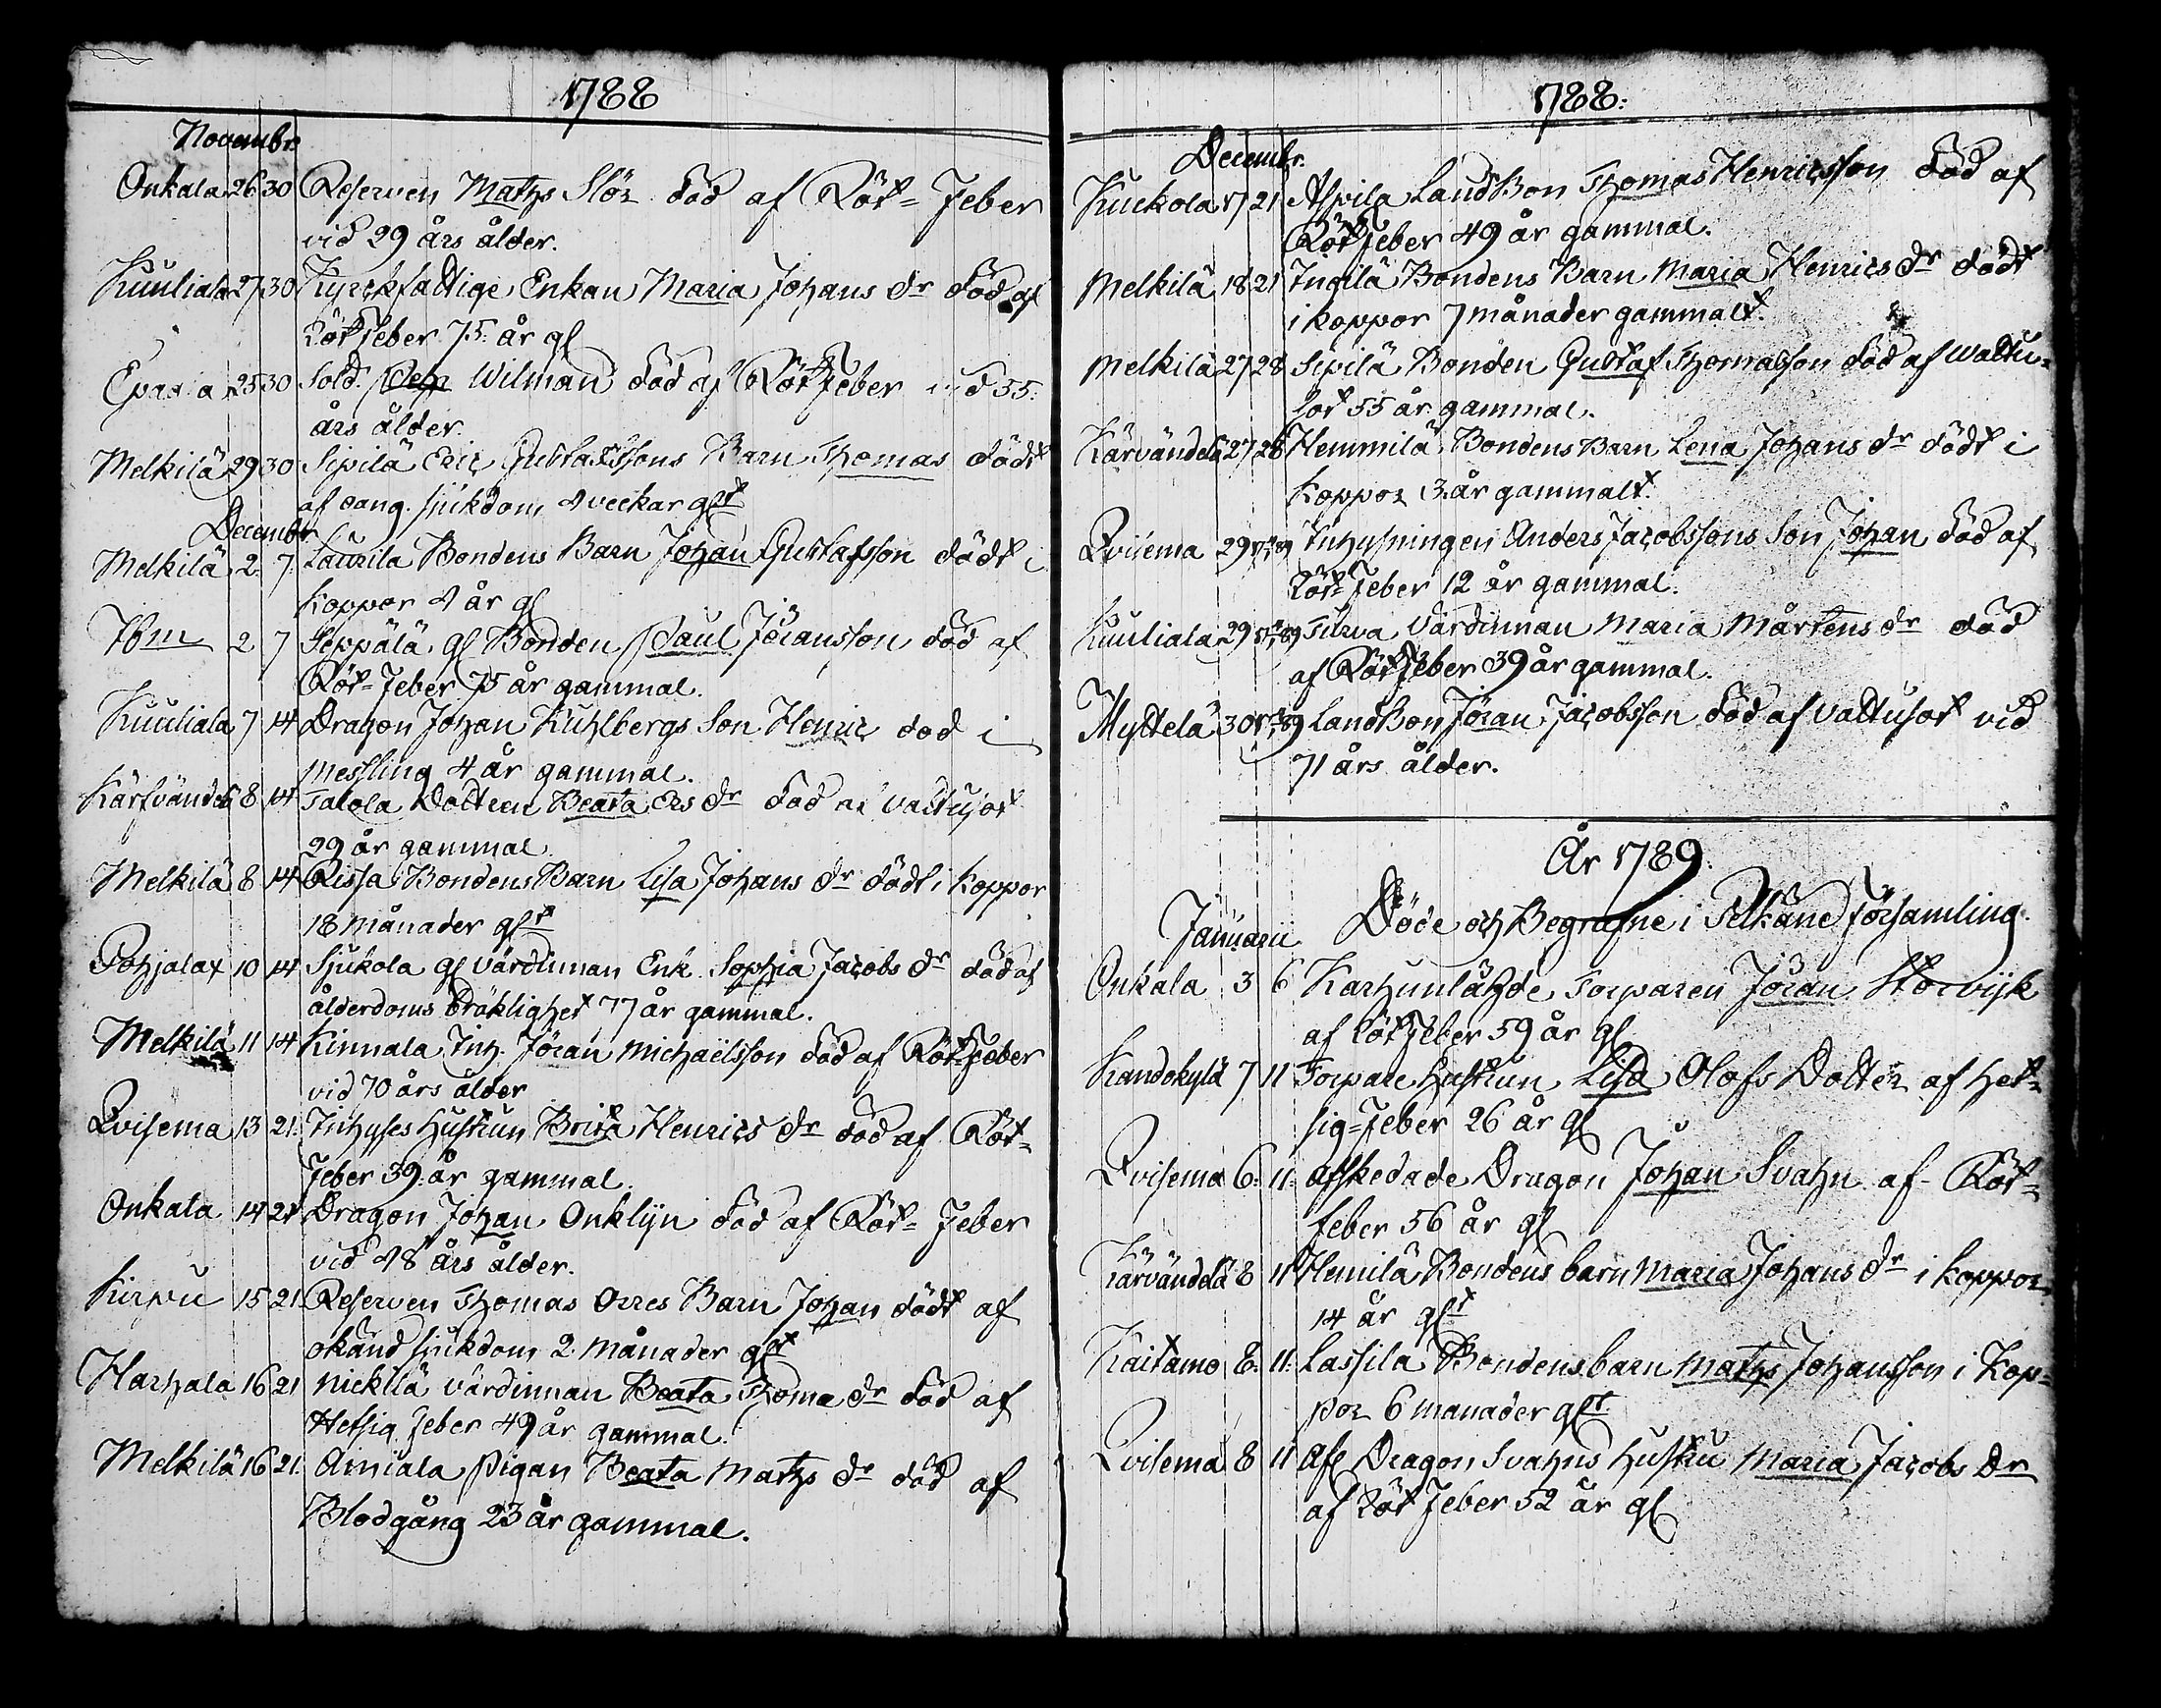 1788
Novembr.
Onkala 26 30 Reserven Mathz Slöör död af Röt=Feber
vid 29 års ålder.
Kuuliala 27 30 Kyrckfattige Enkan Maria Johans dr död af
RötFeber 75 år gl
25 30 Sold. Pehr Wilman död af RötFeber vid 55
års ålder.
Melkilä 29 30 Sipilä Eric Gustafssons Barn Thomas dödt
af oang. sjukdom 4 veckar glt
Decembr
Melkilä 2 7 Laurila Bondens Barn Johan Gustafsson dödt i
koppor 4 år gl
Ibm 2 7 Seppälä gl Bonden Paul Jöransson död af
Röt=Feber 75 år gammal.
Kuuliala 7 14 Dragon Johan Kuhlbergs Son Henric död i
Messling 4 år gammal.
Kärfvändelä 8 14 Talola Dottren Beata Ers dr död af vattusot
29 år gammal.
Melkilä 8 14 Rissa Bondens Barn Lisa Johans dr dödt i koppor
18 månader glt
Pohjalax 10 14 Sjukola gl värdinnan Enk. Sophia Jacobs dr död af
ålderdoms bräklighet 77 år gammal.
Melkilä 11 14 Kinnala Inh. Jöran Michaëlsson död af RötFeber
vid 70 års ålder
Qvisema 13 21 Inhyses Hustrun Brita Henrics dr död af Röt=
Feber 39 år gammal.
Onkala 14 21 Dragon Johan Onklijn död af Röt=Feber
vid 48 års ålder.
Kirpu 15 21 Reserven Thomas Orres Barn Johan dödt af
okänd sjukdom 2 månader glt
Harhala 16 21 Nickilä värdinnan Beata Thoma dr död af
Hetsig Feber 49 år gammal.
Melkilä 16 21 Ainiala Pigan Beata Mathz dr död af
Blodgång 23 år gammal.
1788:
Decembr.
Kuckola 17 21 Aspila Landbon Thomas Henricsson död af
RötFeber 49 år gammal.
Melkilä 18 21 Ingilä Bondens Barn Maria Henrics dr dödt
i koppor 7 månader gammalt.
Melkilä 27 28 Sipilä Bonden Gustaf Thomasson död af wattu=
sot 55 år gammal.
Kärvändelä 27 28 Hemmilä Bondens Barn Lena Johans dr dödt i
Koppor 3 år gammalt.
Qvisema 29 Inhysningen Anders Jacobssons Son Johan död af
Röt=Feber 12 år gammal.
Kuuliala 29 Turva Värdinnan Maria Mårtens dr död
af RötFeber 39 år gammal.
Myttelä 30 Landbon Jöran Jacobsson död af vattusot vid
71 års ålder.
År 1789.
Döde och Begrafne i Pelkäne Församling.
Januarii
Onkala 3 6 Karhunlähde Torparen Jöran Storvijk
af RötFeber 59 år gl
Kandokylä 7 11 Torpare hustrun Lisa Olofs Dotter af het=
sig=Feber 26 år gl
Qvisema 6 11 afskedade Dragon Johan Svahn af Röt=
feber 56 år gl
Kärvändelä 8 11 Hemilä Bondens barn Maria Johans dr i koppor
14 år glt
Kaitamo 8 11 Lassila Bondens barn Mathz Johansson i Kop=
por 6 månader glt.
Qvisema 8 11 afs Dragon Svahns Hustru Maria Jacobs Dr
af Röt Feber 52 år gl